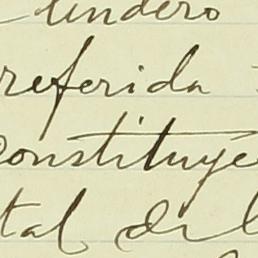 lindero
referida
constituye
tal del